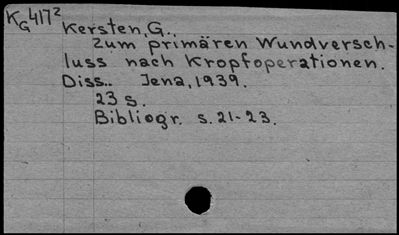 KG 417²
Kersten, G..
Zum primären Wundversch-
luss nach Kropfoperationen.
Diss.. Jena, 1939.
23 s.
Bibliogr. s. 21-23.